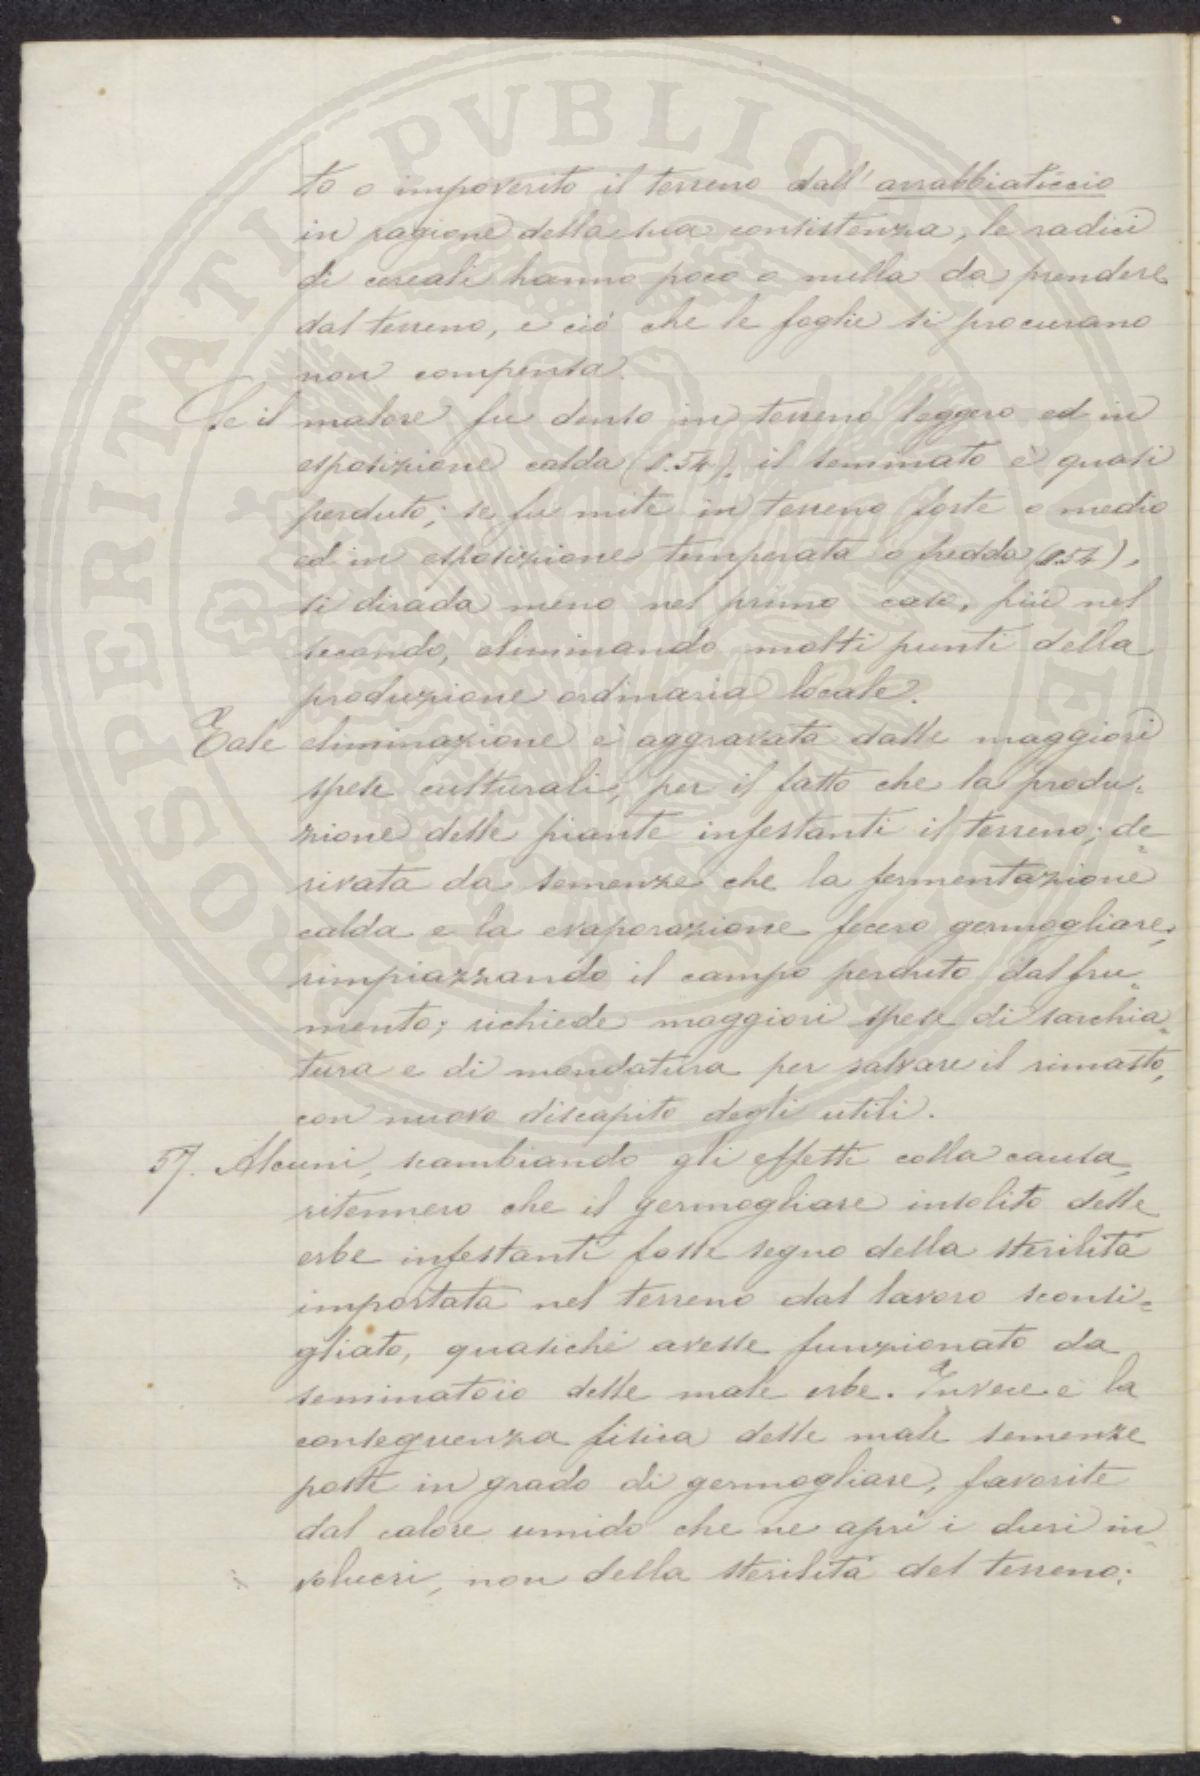 to o impoverito il terreno dall'arrabbiaticcio
in ragione della sua consistenza, le radici
di cereali hanno poco o nulla da prendere
dal terreno, e ciò che le foglie si procurano
non compensa.
Se il malore fu denso in terreno leggero ed in
esposizione calda (§.54), il seminato è quasi
perduto; se fu mite in terreno forte o medio
ed in esposizione temperata o fredda (§.54),
si dirada meno nel primo caso, più nel
secondo, eliminando molti punti della
produzione ordinaria locale.
Tale eliminazione è aggravata dalle maggiori
spese culturali, per il fatto che la produ-
zione delle piante infestanti il terreno; de-
rivata da semenze che la fermentazione
calda e la evaporazione fecero germogliare,
rimpiazzando il campo perduto dal fru-
mento; richiede maggiori spese di sarchia-
tura e di mondatura per salvare il rimasto,
con nuovo discapito degli utili.
57. Alcuni, scambiando gli effetti colla causa,
ritennero che il germogliare insolito delle
erbe infestanti fosse segno della sterilità
importata nel terreno dal lavoro sconsi-
gliato, quasichè avesse funzionato da
seminatoio delle male erbe. Invece è la
conseguenza fisica delle male semenze
poste in grado di germogliare, favorite
dal calore umido che ne aprì i duri in-
volucri, non della sterilità del terreno;
PROSPERITATI PVBLICAE